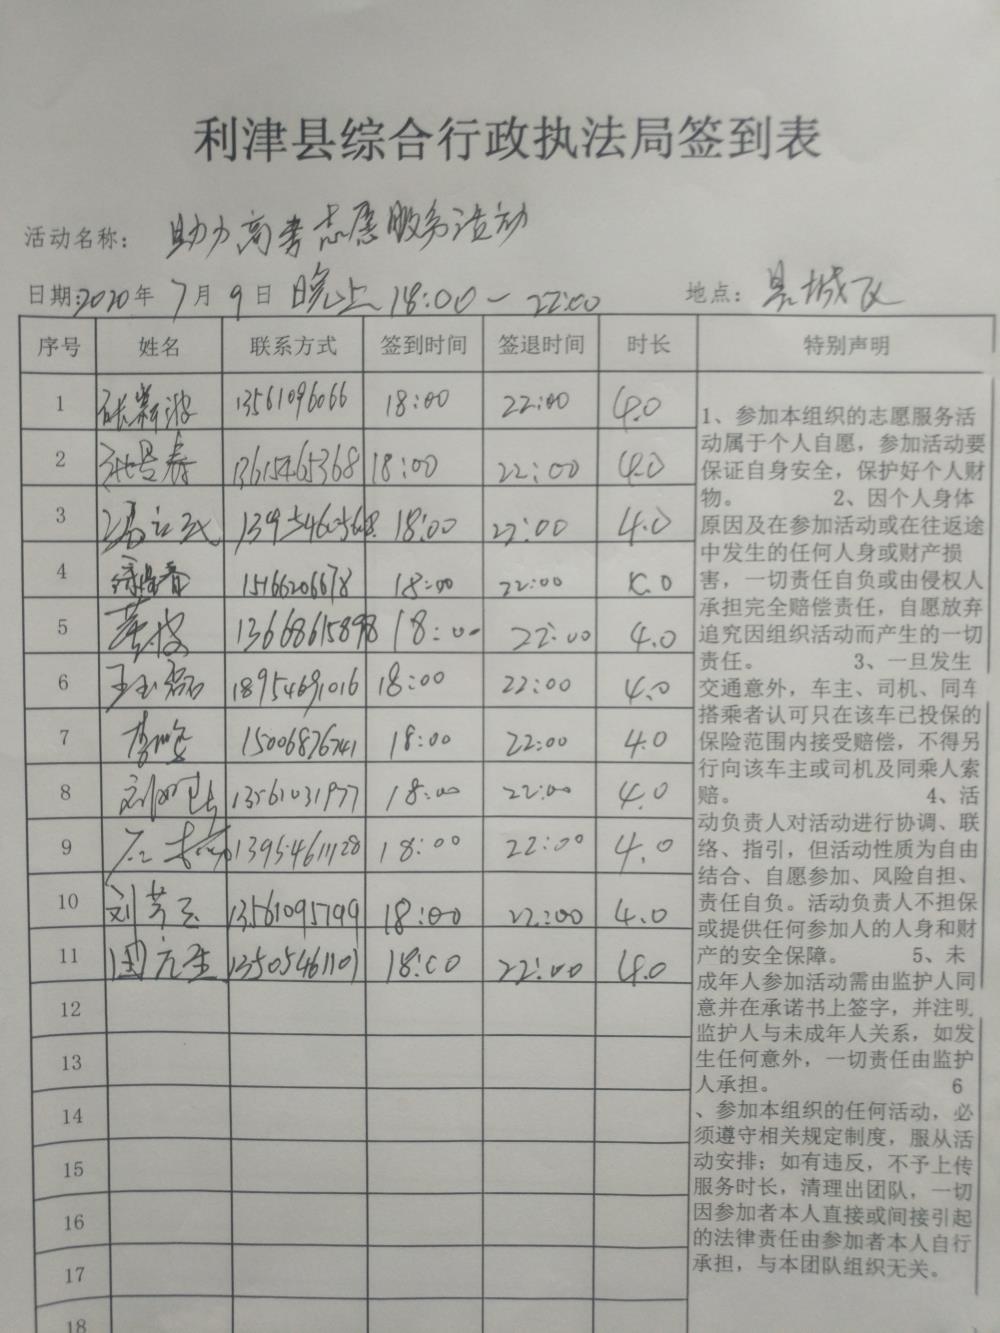 利津县综合行政执法局签到表
活动名称： 助力高考志愿服务活动
日期:2020年 7月 9日 晚上 18:00-22:00 地点： 县城区
序号 姓名 联系方式 签到时间 签退时间 时长 特别声明
1 13561096066 18:00 22:00 4.0
2 13615465368 18:00 22:00 4.0
3 18:00 22:00 4.0
4 15166206678 18:00 22:00
5 18:00 22:00 4.0
6 王玉磊 18954691016 18:00 22:00 4.0
7 15006876741 18:00 22:00 4.0
8 13561031977 18:00 22:00 4.0
9 13954611128 18:00 22:00 4.0
10 刘芳玉 13561095799 18:00 22:00 4.0
11 国元圣 13505461101 18:00 22:00 4.0
12
13
14
15
16
17
18
1、参加本组织的志愿服务活
动属于个人自愿，参加活动要
保证自身安全，保护好个人财
物。 2、因个人身体
原因及在参加活动或在往返途
中发生的任何人身或财产损
害，一切责任自负或由侵权人
承担完全赔偿责任，自愿放弃
追究因组织活动而产生的一切
责任。 3、一旦发生
交通意外，车主、司机、同车
搭乘者认可只在该车已投保的
保险范围内接受赔偿，不得另
行向该车主或司机及同乘人索
赔。 4、活
动负责人对活动进行协调、联
络、指引，但活动性质为自由
结合、自愿参加、风险自担、
责任自负。活动负责人不担保
或提供任何参加人的人身和财
产的安全保障。 5、未
成年人参加活动需由监护人同
意并在承诺书上签字，并注明
监护人与未成年人关系，如发
生任何意外，一切责任由监护
人承担。 6
、参加本组织的任何活动，必
须遵守相关规定制度，服从活
动安排；如有违反，不予上传
服务时长，清理出团队，一切
因参加者本人直接或间接引起
的法律责任由参加者本人自行
承担，与本团队组织无关。